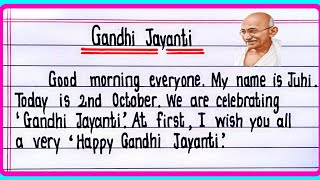 Gandhi Jayanti
Good morning everyone. My name is Juhi.
Today is 2nd October. We are celebrating
'Gandhi Jayanti'. At first, I wish you all
a very 'Happy Gandhi Jayanti'.